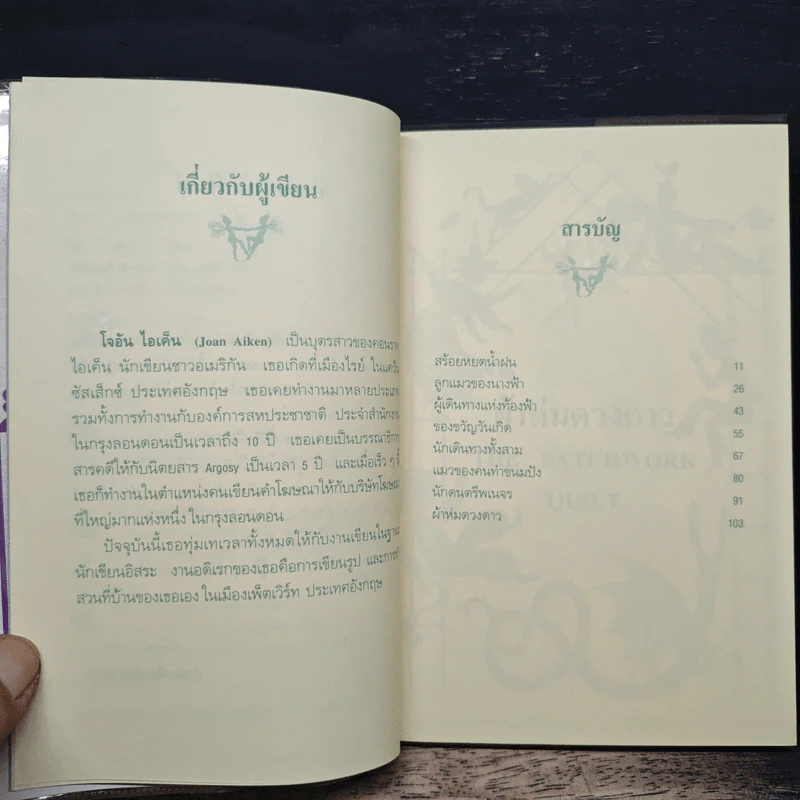 เกี่ยวกับผู้เขียน
โจอัน ไอเค็น (Joan Aiken) เป็นบุตรสาวของคอนราด
ไอเค็น นักเขียนชาวอเมริกัน เธอเกิดที่เมืองไรย์ ในแคว้น
ซัสเส็กซ์ ประเทศอังกฤษ เธอเคยทำงานมาหลายประเภท
รวมทั้งการทำงานกับองค์การสหประชาชาติ ประจำสำนักงาน
ในกรุงลอนดอนเป็นเวลาถึง 10 ปี เธอเคยเป็นบรรณาธิการ
สารคดีให้กับนิตยสาร Argosy เป็นเวลา 5 ปี และเมื่อเร็ว ๆ นี้
เธอก็ทำงานในตำแหน่งคนเขียนคำโฆษณาให้กับบริษัทโฆษณา
ที่ใหญ่มากแห่งหนึ่งในกรุงลอนดอน
ปัจจุบันนี้เธอทุ่มเทเวลาทั้งหมดให้กับงานเขียนในฐานะ
นักเขียนอิสระ งานอดิเรกของเธอคือการเขียนรูป และการทำ
สวนที่บ้านของเธอเอง ในเมืองเพ็ตเวิร์ท ประเทศอังกฤษ
สารบัญ
สร้อยหยดน้ำฝน 11
ลูกแมวของนางฟ้า 26
ผู้เดินทางแห่งท้องฟ้า 43
ของขวัญวันเกิด 55
นักเดินทางทั้งสาม 67
แมวของคนทำขนมปัง 80
นักดนตรีพเนจร 91
ผ้าห่มดวงดาว 103